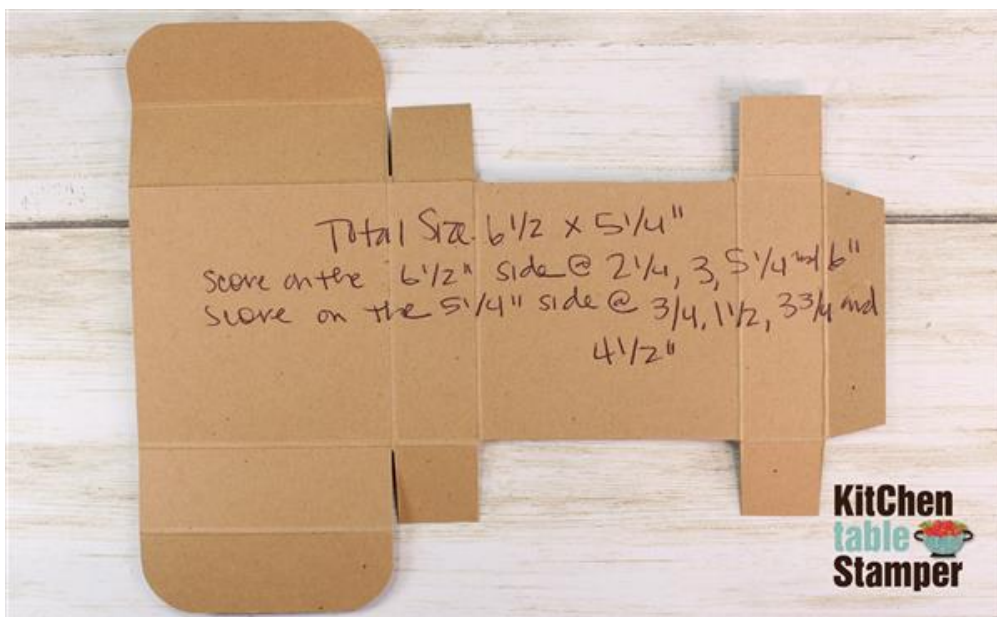 Total Size 6 1/2 x 5 1/4"
Score on the 6 1/2" side @ 2 1/4, 3, 5 1/4 and 6"
Score on the 5 1/4" side @ 3/4, 1 1/2, 3 3/4 and
4 1/2"
KitChen
table
Stamper